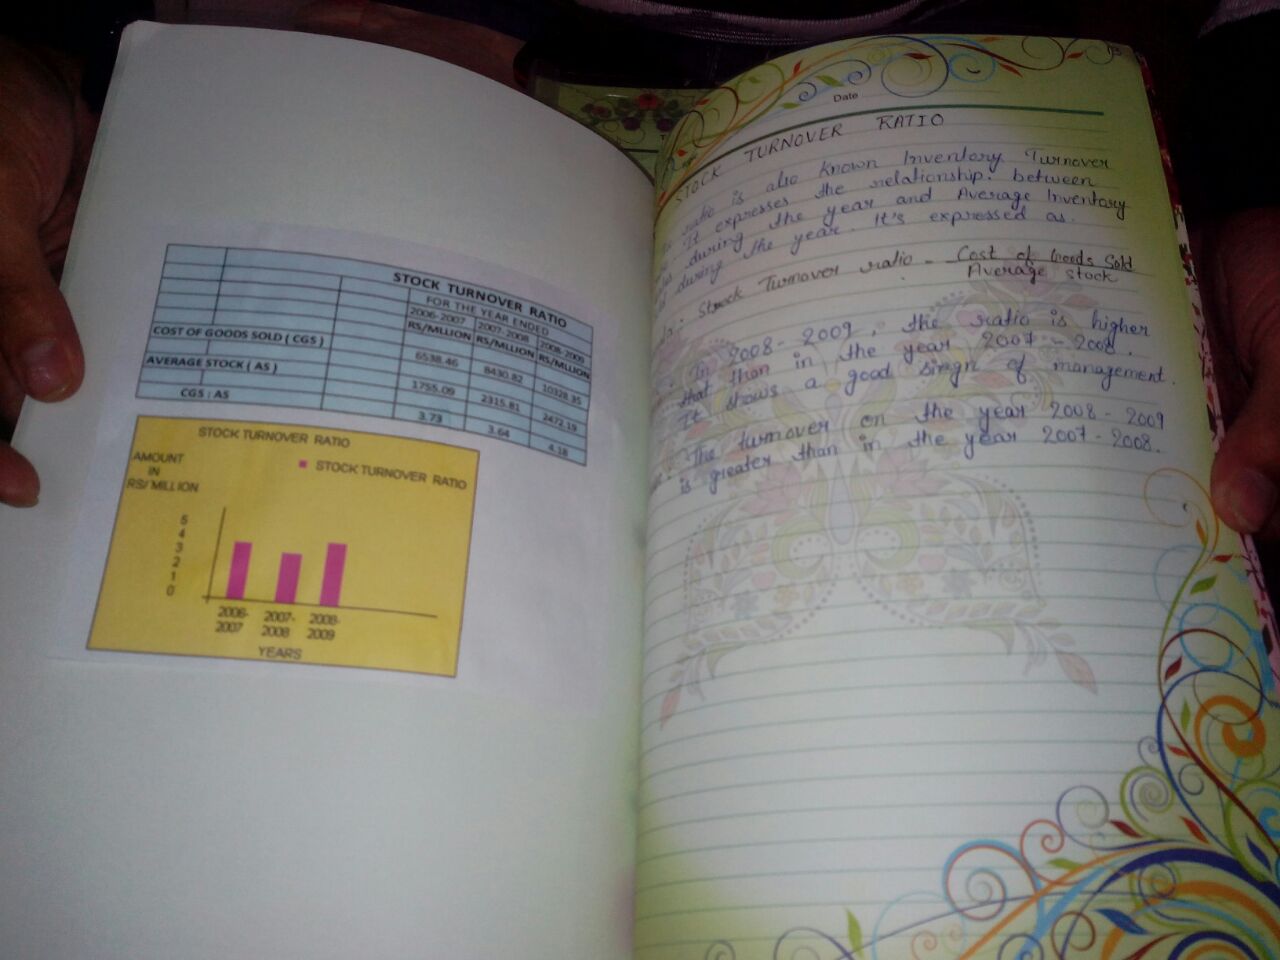 STOCK TURNOVER RATIO
FOR THE YEAR ENDED
2006-2007 2007-2008 2008-2009
RS/MLLION RS/MLLION RS/MLLION
COST OF GOODS SOLD ( CGS ) 6538.46 8430.82 10328.35
AVERAGE STOCK ( AS ) 1755.09 2315.81 2472.19
CGS : AS 3.73 3.64 4.18
STOCK TURNOVER RATIO
STOCK TURNOVER RATIO
AMOUNT
IN
RS/ MILLION
5
4
3
2
1
0
2006-
2007
2007-
2008
2008-
2009
YEARS
Date
STOCK TURNOVER RATIO
ratio is also known Inventory Turnover
It expresses the relationship. between
during the year and Average Inventory
during the year. It's expressed as.
Stock Turnover ratio = Cost of Goods Sold
Average stock
In 2008 - 2009, the ratio is higher
that than in the year 2007 - 2008.
It shows a good singn of management.
The turnover on the year 2008 - 2009
is greater than in the year 2007 - 2008.